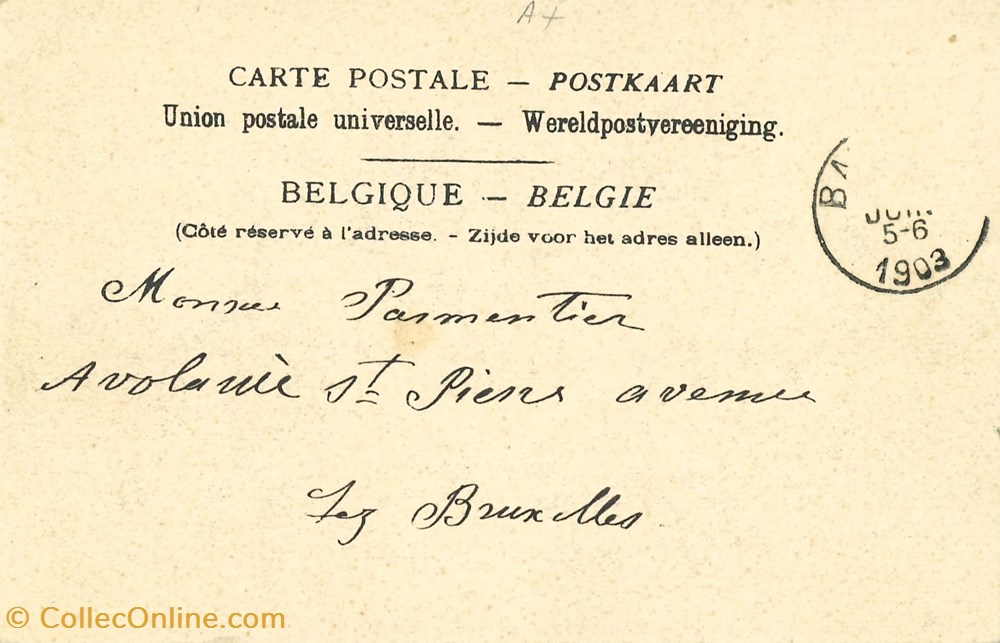 A+
CARTE POSTALE — POSTKAART
Union postale universelle. — Wereldpostvereeniging.
BELGIQUE — BELGIE
(Côté réservé à l'adresse. - Zijde voor het adres alleen.)
BA
JUIN
5-6
1903
Monsue Parmentier
Avolauiè St Pierre avenue
Lez Bruxelles
© CollecOnline.com